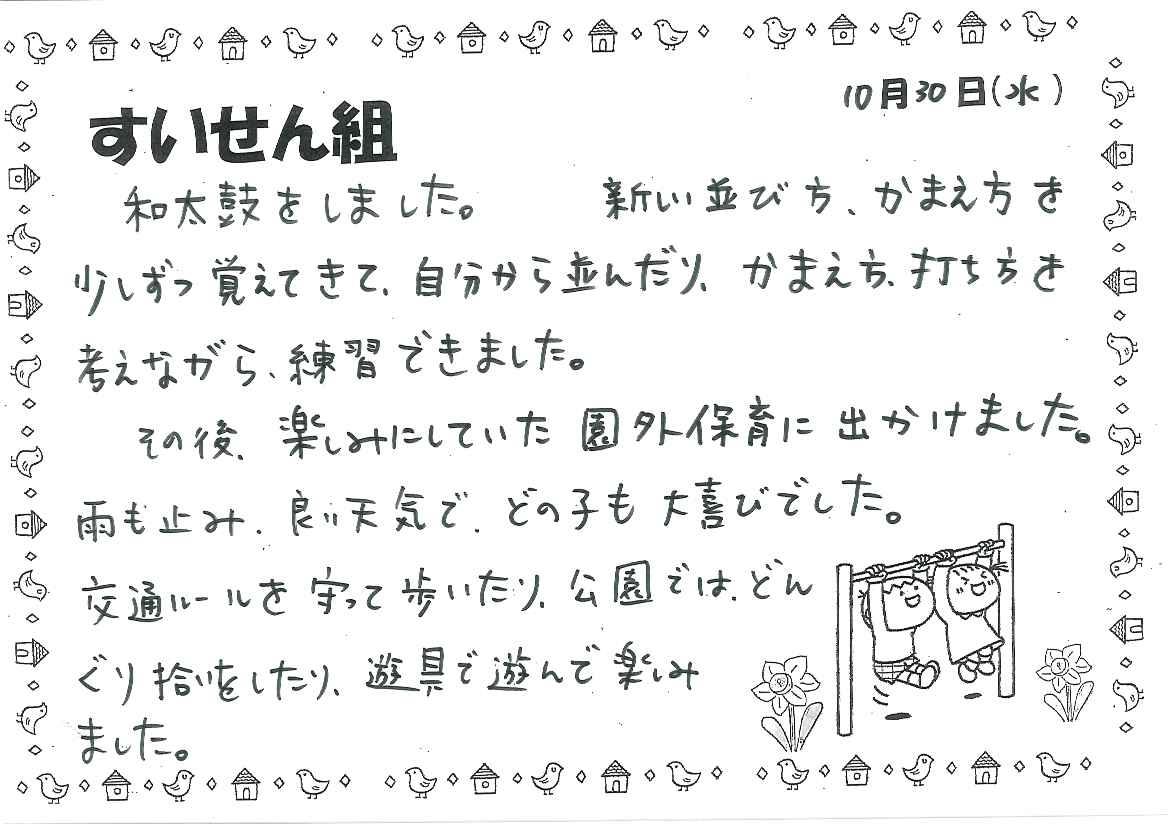 10月30日(水)
すいせん組
和太鼓をしました。 新しい並び方、かまえ方を
少しずつ覚えてきて、自分から並んだり、かまえ方、打ち方を
考えながら、練習できました。
その後、楽しみにしていた園外保育に出かけました。
雨も止み、良い天気で、どの子も大喜びでした。
交通ルールを守って歩いたり、公園では、どん
ぐり拾いをしたり、遊具で遊んで楽しみ
ました。